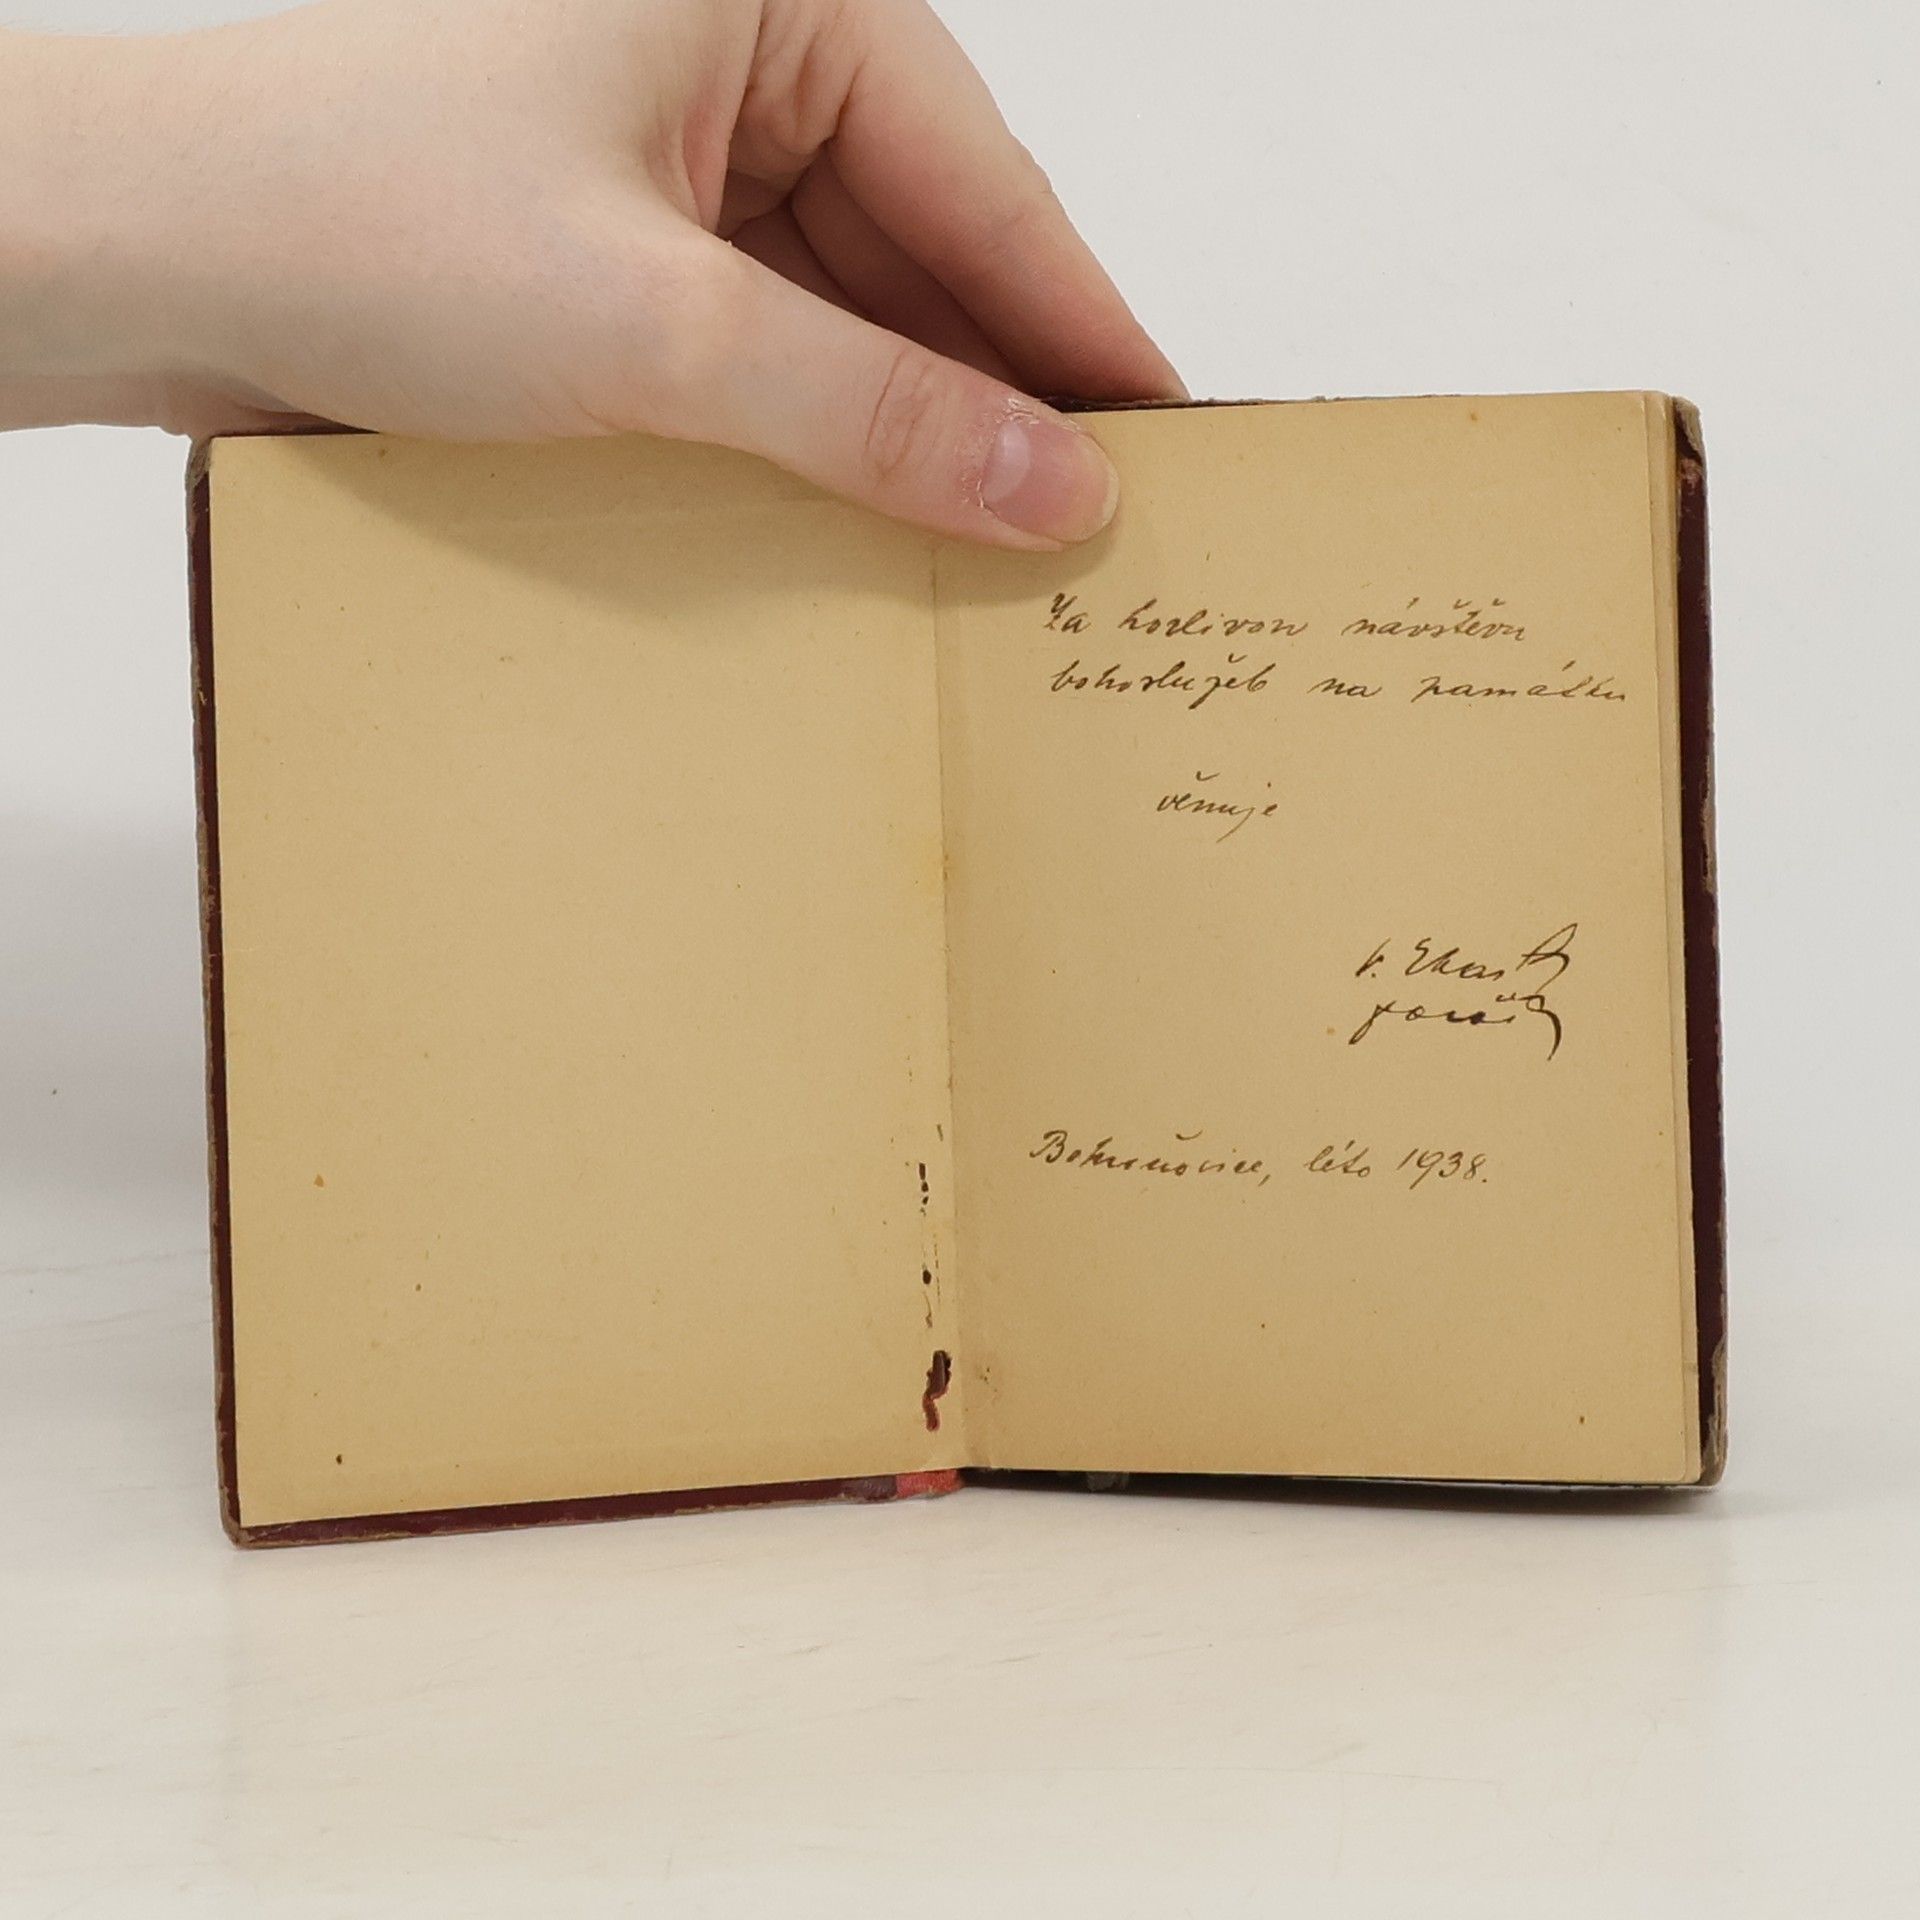 Za horlivou návštěvu
bohoslužeb na památku
věnuje
V.
farář
léto 1938.